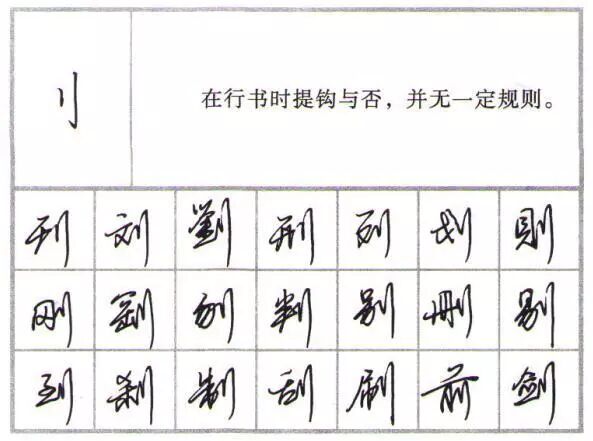 刂
在行书时提钩与否，并无一定规则。
刊 刘 劉 刑 列 划 則
刚 剛 判 别 删 剔
到 刹 制 刮 刷 前 剑